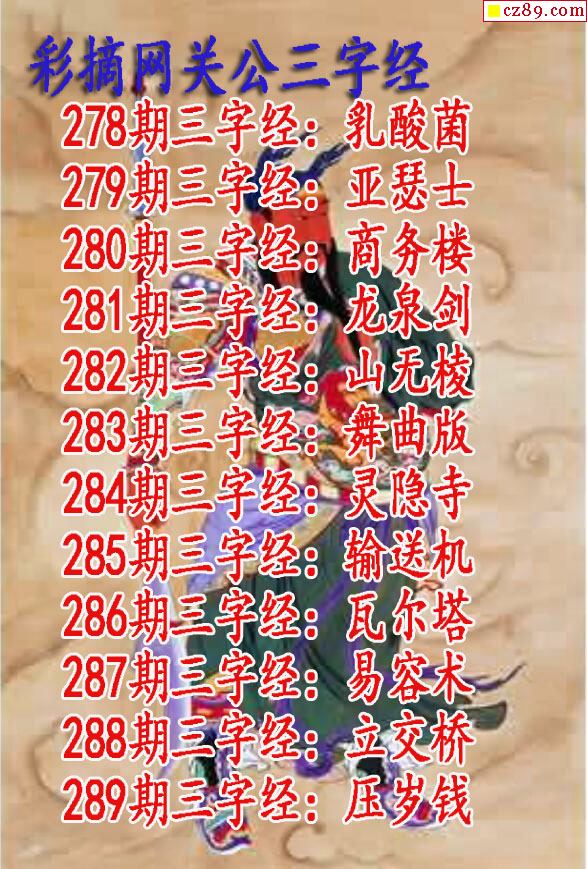 cz89.com
彩摘网关公三字经
278期三字经：乳酸菌
279期三字经：亚瑟士
280期三字经：商务楼
281期三字经：龙泉剑
282期三字经：山无棱
283期三字经：舞曲版
284期三字经：灵隐寺
285期三字经：输送机
286期三字经：瓦尔塔
287期三字经：易容术
288期三字经：立交桥
289期三字经：压岁钱